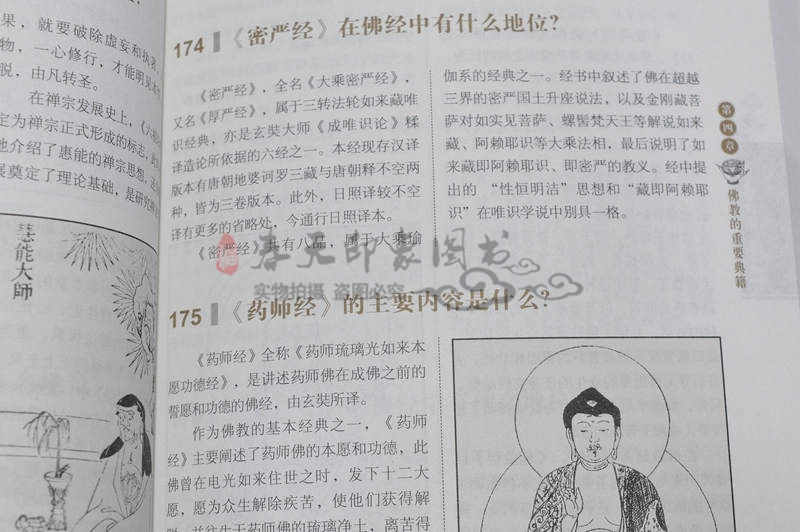 果，就要破除虚妄和执着
物，一心修行，才能明见本
脱，由凡转圣。
在禅宗发展史上，《六
定为禅宗正式形成的标志，此
他介绍了惠能的禅宗思想，志
展奠定了理论基础，是研究禅
慧能大師
174 《密严经》在佛经中有什么地位？
《密严经》，全名《大乘密严经》，
又名《厚严经》，属于三转法轮如来藏唯
识经典，亦是玄奘大师《成唯识论》糅
译造论所依据的六经之一。本经现存汉译
版本有唐朝地婆诃罗三藏与唐朝释不空两
种，皆为三卷版本。此外，日照译较不空
译有更多的省略处，今通行日照译本。
《密严经》共有八品，属于大乘瑜
伽系的经典之一。经书中叙述了佛在超越
三界的密严国土升座说法，以及金刚藏菩
萨对如实见菩萨、螺髻梵天王等解说如来
藏、阿赖耶识等大乘法相，最后说明了如
来藏即阿赖耶识、即密严的教义。经中提
出的“性恒明洁”思想和“藏即阿赖耶
识”在唯识学说中别具一格。
第四章
佛教的重要典籍
春天印象图书
实物拍摄 盗图必究
175 《药师经》的主要内容是什么？
《药师经》全称《药师琉璃光如来本
愿功德经》，是讲述药师佛在成佛之前的
誓愿和功德的佛经，由玄奘所译。
作为佛教的基本经典之一，《药师
经》主要阐述了药师佛的本愿和功德，此
佛曾在电光如来住世之时，发下十二大
愿，愿为众生解除疾苦，使他们获得解
脱，并往生于药师佛的琉璃净土，离苦得